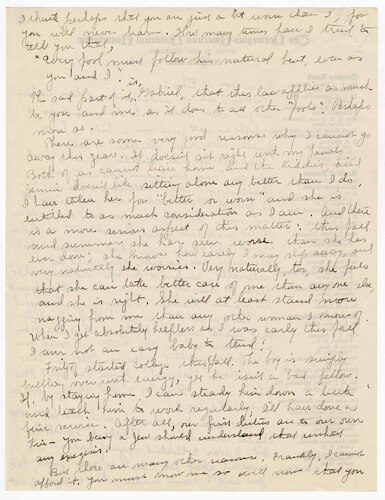 I think perhaps that you are just a bit worse than I, for
you will never learn. How many times have I tried to
tell you that,
"Every fool must follow his natural bent, even as
you and I"
The sad part of it is, Gabriel, that this law applies as much
to you and me as it does to all other "fools". Perhaps
more so.
There are some very good reasons why I cannot go
away this year. It doesn't sit right with my family.
Both of us cannot leave home and the kiddies and
Jennie doesn't like sitting alone any better than I do.
I have taken her for "better or worse" and she is
entitled to as much consideration as I am. And there
is a more serious aspect of this matter; this fall
and summer she has seen me worse than she has
ever done; she knows how easily I may slip away, and
very naturally she worries. Very naturally, too, she feels
that she can take better care of me than anyone else
and she is right. She will at least stand more
nagging from me than any other woman I know of.
When I get absolutely helpless as I was early this fall
I am not an easy baby to tend!
Fritz started college this fall. The boy is simply
bubbling over with energy, yet he isn't a bad fellow.
If, by staying home, I can steady him down a little
and teach him to work regularly, I'll have done a
fine service. After all, our first duties are to our own
kin - you being a Jew should understand that without
any exegesis.
But there are many other reasons. Frankly, I cannot
afford it. You must know me so well now that you